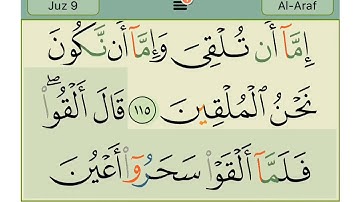 Juz 9 Al-Araf
إِمَّآ أَن تُلْقِىَ وَإِمَّآ أَن نَّكُونَ
نَحْنُ ٱلْمُلْقِينَ ١١٥ قَالَ أَلْقُوا۟ۖ
فَلَمَّآ أَلْقَوْا۟ سَحَرُوٓا۟ أَعْيُنَ